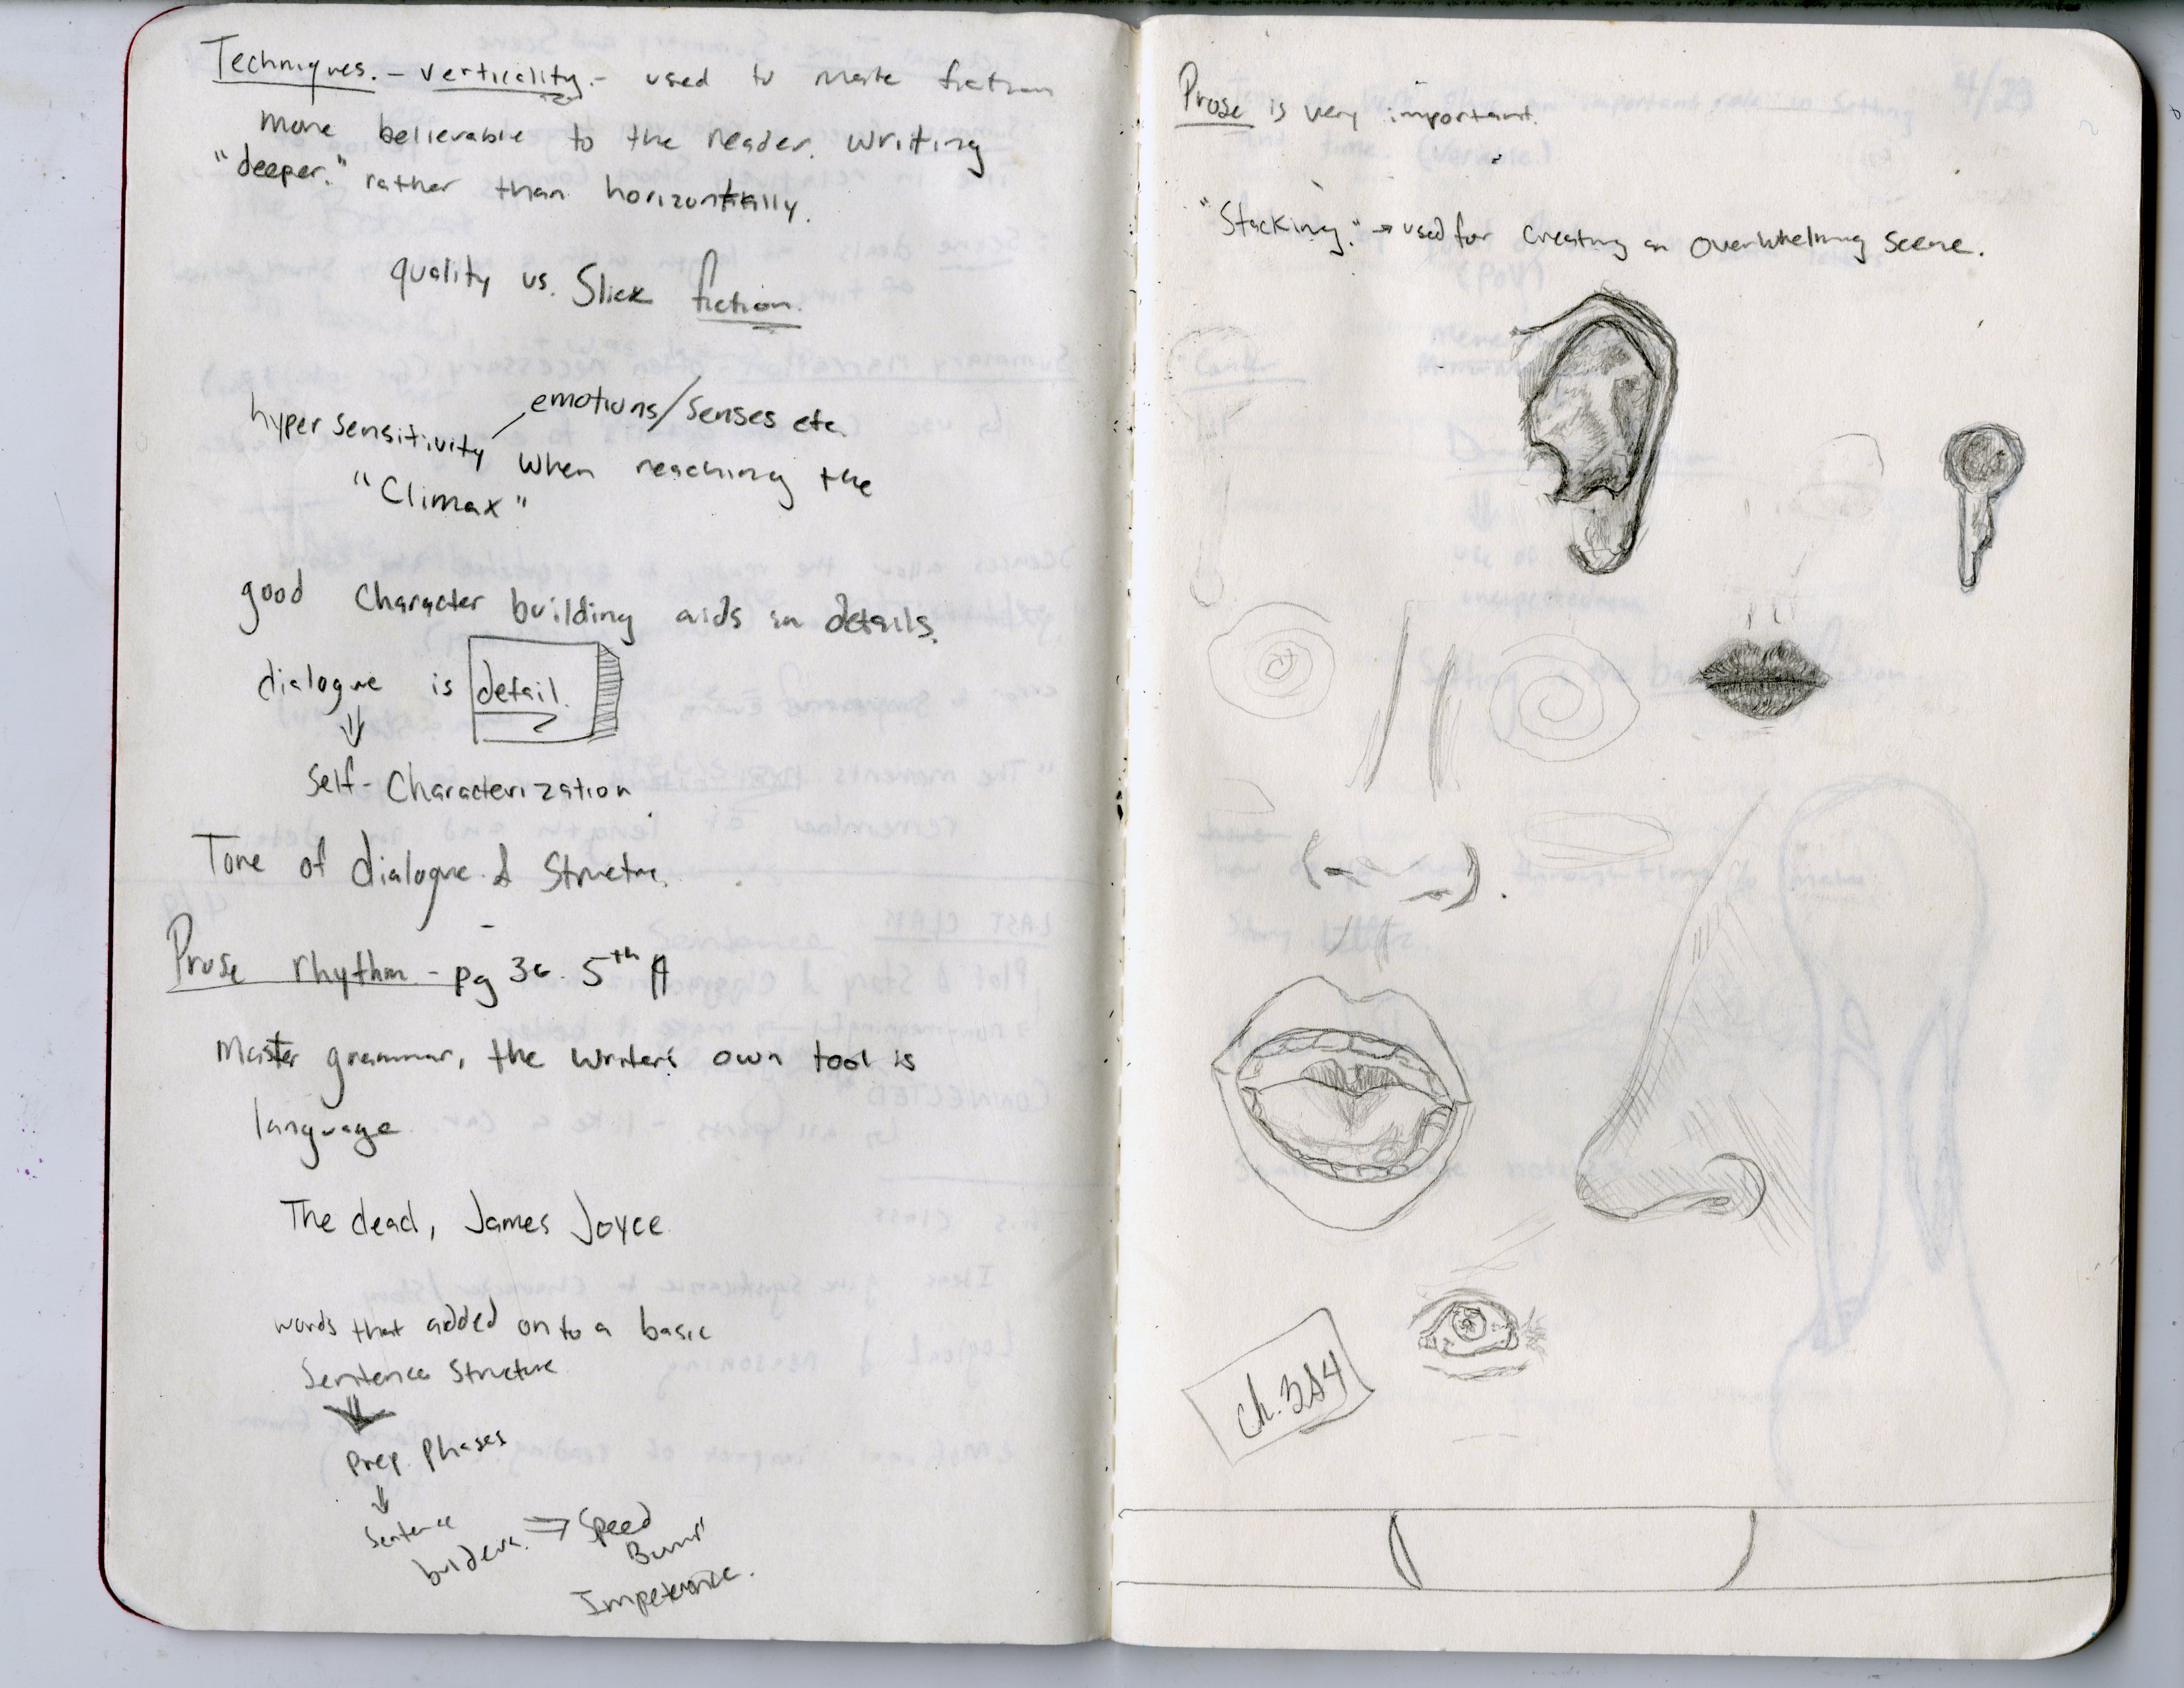 Techniques. - verticality - used to make fiction
more believable to the reader. writing
"deeper." rather than horizontally.
quality vs. Slick fiction.
emotions/senses etc.
hypersensitivity when reaching the
"Climax"
good character building aids in details.
dialogue is detail.
Self-Characterization
Tone of dialogue & Structure
Prose rhythm - pg 36. 5th
Master grammar, the writers own tool is
language
The dead, James Joyce
words that added onto a basic
Sentence Structure
prep. phases
Sentence
builders. ⇒ Speed
Prose is very important.
"Stacking." → used for creating an overwhelming scene.
ch. 3&4